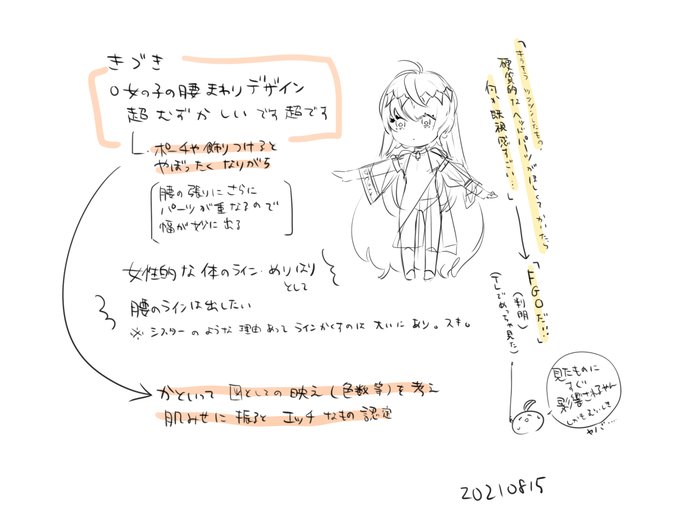 きづき
○女の子の腰まわりデザイン
超むずかしいです超です
ポーチや飾りつけると
やぼったくなりがち
腰の張りにさらに
パーツが重なるので
幅が妙に出る
女性的な体のライン・めりはり
として
腰のラインは出したい
※シスターのような理由あってラインかくすのは大いにあり。スキ。
かといって図としての映え(色数等)を考え
肌みせに振るとエッチなもの認定
硬質的なヘッドパーツがほしくてかいたら
何か既視感すごい…」
「FGOだ!!」
(判明)
(テレビでめっちゃ見た)
見たものに
すぐ
影響されちゃん
ヤバ…
20210815